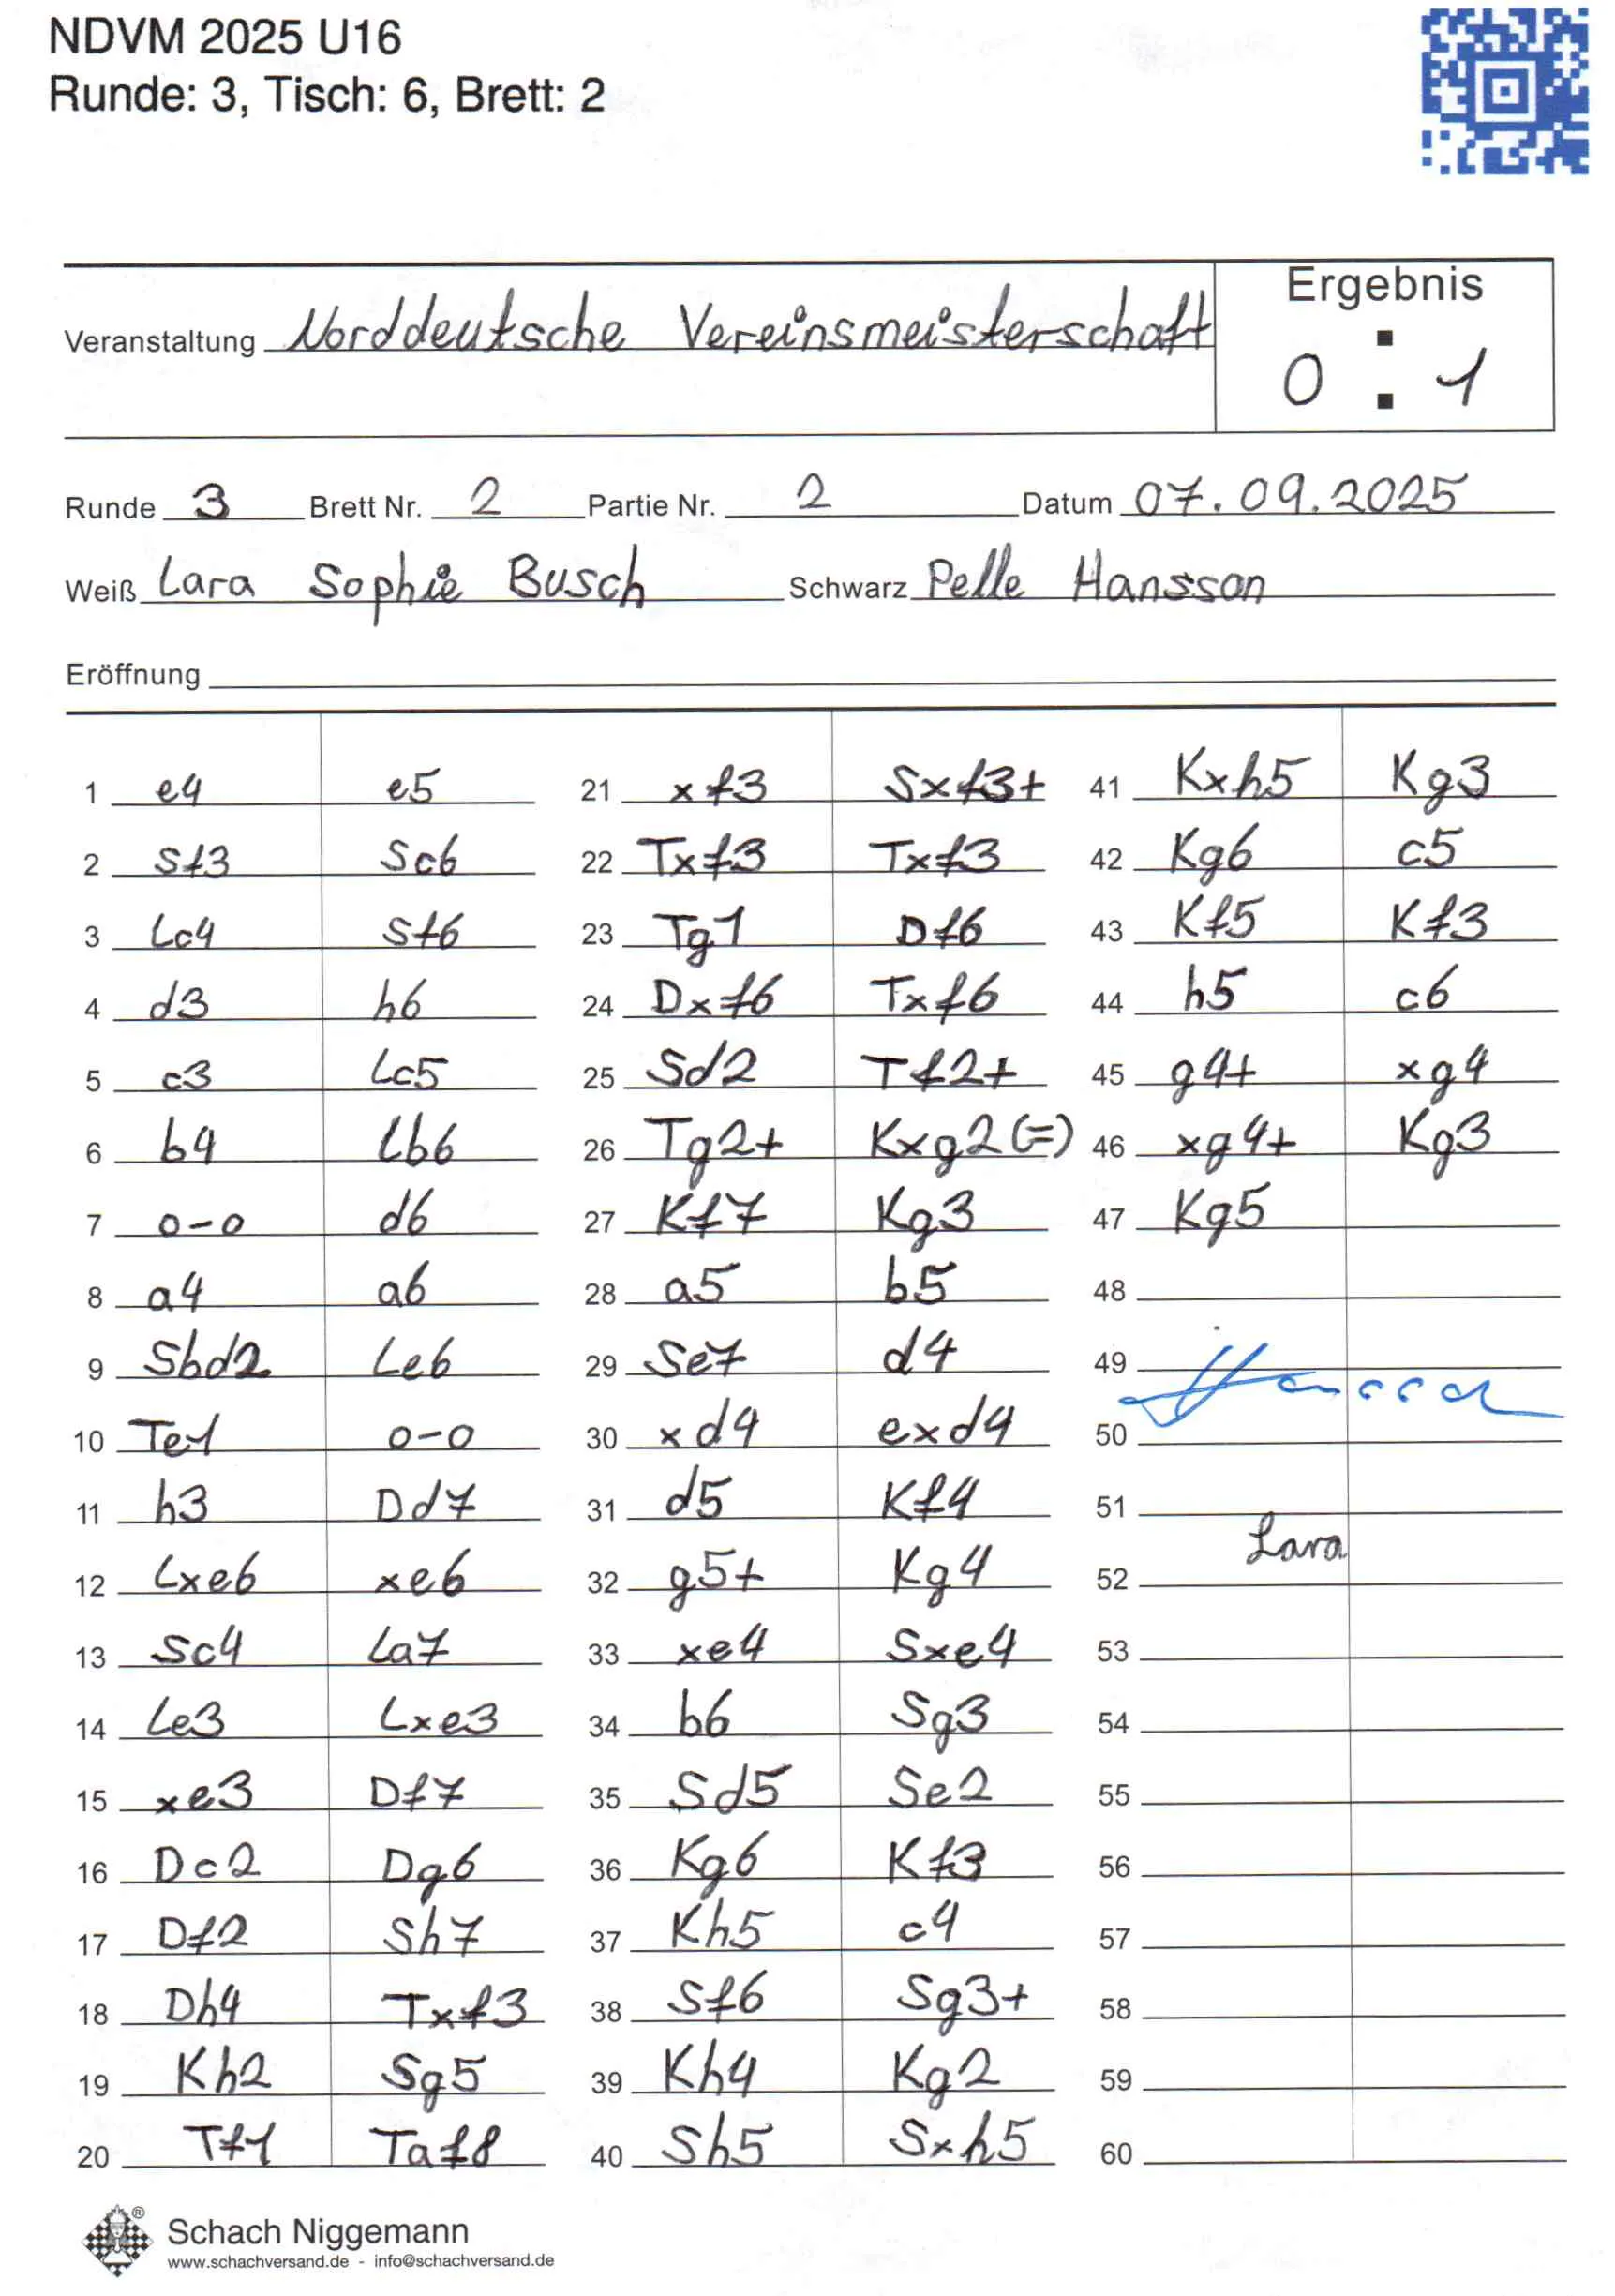 NDVM 2025 U16
Runde: 3, Tisch: 6, Brett: 2
Veranstaltung Norddeutsche Vereinsmeisterschaft
Ergebnis
0 : 1
Runde 3 Brett Nr. 2 Partie Nr. 2 Datum 07.09.2025
Weiß Lara Sophie Busch Schwarz Pelle Hansson
Eröffnung
1 e4 e5 21 xf3 Sxf3+ 41 Kxh5 Kg3
2 Sf3 Sc6 22 Txf3 Txf3 42 Kg6 c5
3 Lc4 Sf6 23 Tg1 Df6 43 Kf5 Kf3
4 d3 h6 24 Dxf6 Txf6 44 h5 c6
5 c3 Lc5 25 Sd2 Tf2+ 45 g4+ xg4
6 b4 Lb6 26 Tg2+ Kxg2(=) 46 xg4+ Kg3
7 0-0 d6 27 Kf7 Kg3 47 Kg5
8 a4 a6 28 a5 b5 48
9 Sbd2 Le6 29 Se7 d4 49
10 Te1 0-0 30 xd4 exd4 50
11 h3 Dd7 31 d5 Kf4 51
12 Lxe6 xe6 32 g5+ Kg4 52 Lara
13 Sc4 La7 33 xe4 Sxe4 53
14 Le3 Lxe3 34 b6 Sg3 54
15 xe3 Df7 35 Sd5 Se2 55
16 Dc2 Dg6 36 Kg6 Kf3 56
17 Df2 Sh7 37 Kh5 c4 57
18 Dh4 Txf3 38 Sf6 Sg3+ 58
19 Kh2 Sg5 39 Kh4 Kg2 59
20 Tf1 Taf8 40 Sh5 Sxh5 60
Schach Niggemann ®
www.schachversand.de - info@schachversand.de